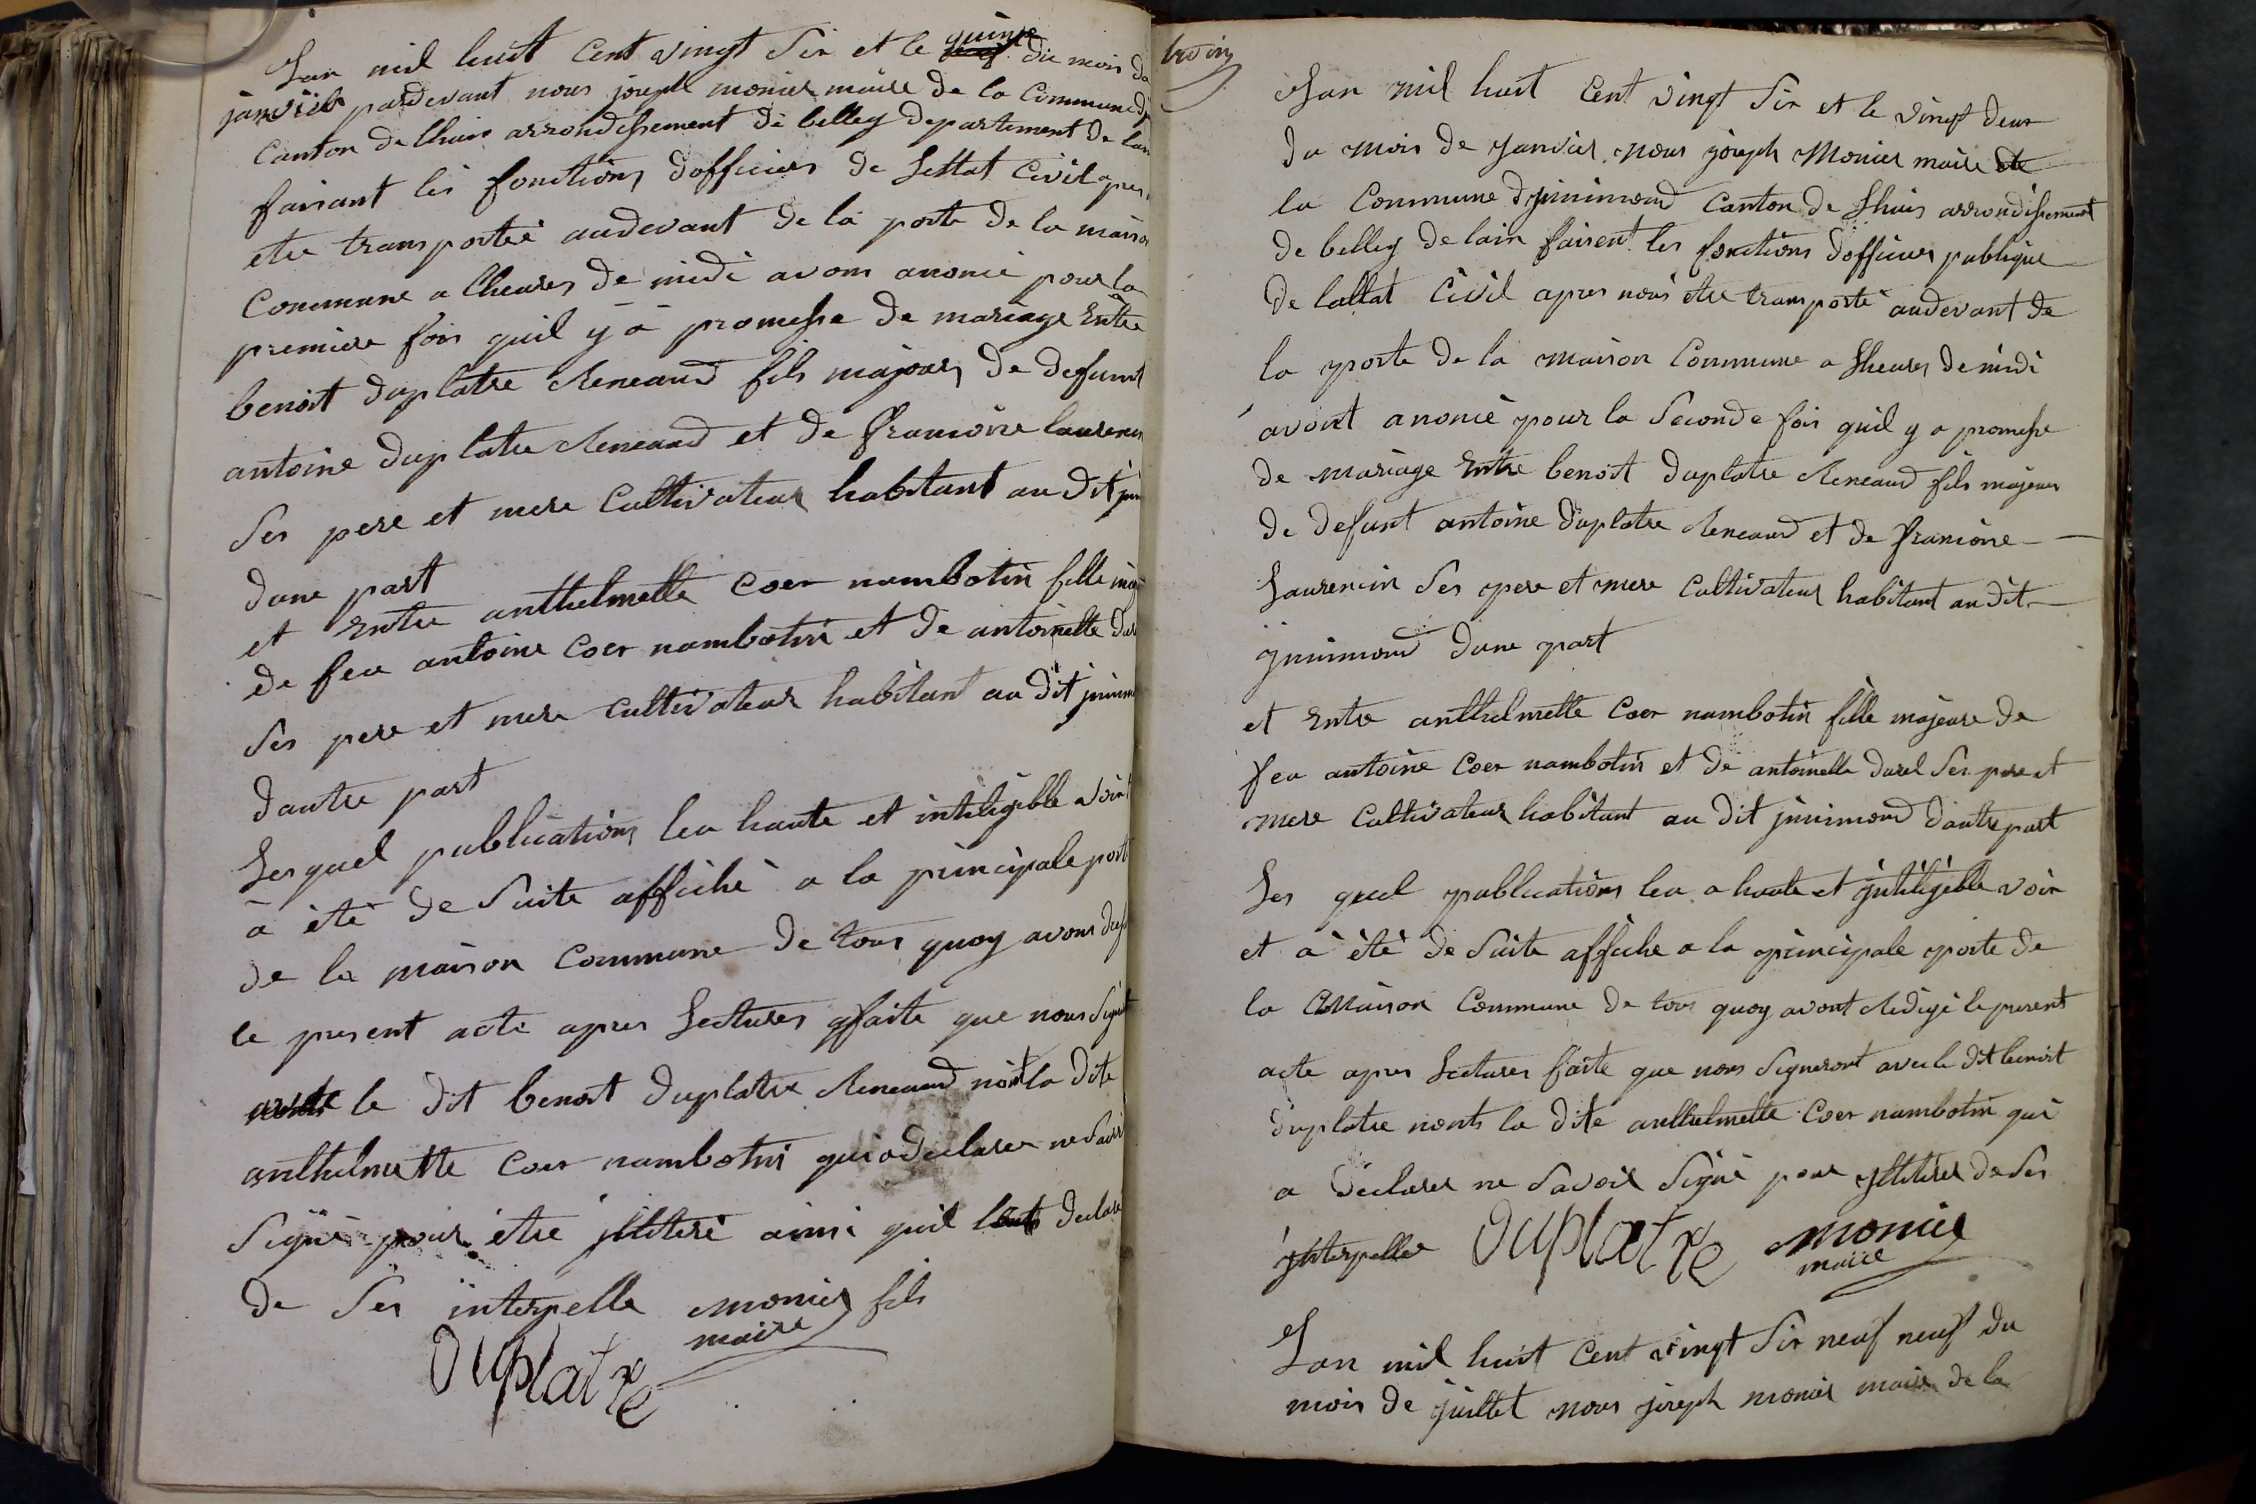 Lan mil huit Cent vingt Six et le quinze du mois de
janvier pardevant nous joseph monier maire de la Commune dj
Canton de lhuis arrondissement de belley departement de lain
faisant les fonctions dofficier de Lettat Civil apres
etre transporteé audevant de la porte de la maison
Commune a lheures de midi avons anoncé pour la
premiere fois quil y a promesse de mariage Entre
benoit duplatre Reneaud fils majours de defunt
antoine duplatre Reneaud et de francoise laurencin
Ses pere et mere Cultivateur habitant au dit jui
dune part
et Entre anthelmette Coer nambotin fille maj
de feu antoine Coer nambotin et de antoinette dur
Ses pere et mere Cultivateur habitant au dit juinm
dautre part
Les quel publications leu haute et inteligible voix
a été de Suite affiché a la principale port
de la maison Commune de tous quoy avons dres
le present acte apres Lectures faite que nous Signeront
le dit benoit duplatre Reneaud nont la dite
anthelmette Coer nambotin qui a declarer ne Savoir
Signé pour être jlliteré ainsi quil declaré
de Ses interpelle monier fils
maire
Duplatre
trois
Lan mil huit Cent vingt Six et le vingt deux
du mois de janvier nous joseph Monier maire de
la Commune djnnimond Canton de Lhuis arrondissement
de belley de lain faisent les fonctions dofficier publique
de lettat Civil apres nous etre transporté audevant de
la porte de la maison Commune a Lheures de midi
avont anoncé pour la Seconde fois quil y a promesse
de mariage Entre benoit duplatre Reneaud fils majeur
de defunt antoine duplatre Reneaud et de francoise
Laurencin Ses pere et mere Cultivateur habitant au dit
jnnimond dune part
et Entre anthelmette Coer nambotin fille majeure de
feu antoine Coer nambotin et de antoinette durel Ses pere et
mere Cultivateur habitant au dit jnnimond dautre part
Les quel publications leu a haute et jnteligible voix
et a été de Suite affiche a la principale porte de
la Maison Commune de tous quoy avont Redigé le present
acte apres Lectures faite que nous Signeront avec le dit benoit
duplatre nonts la dite anthelmette Coer nambotin qui
a declarer ne Savoir Signé pour jlliterer de Ses
jnterpeller Duplatre Monier
maire
Lan mil huit Cent vingt Six neuf neuf du
mois de juillet nous joseph monier maire de la